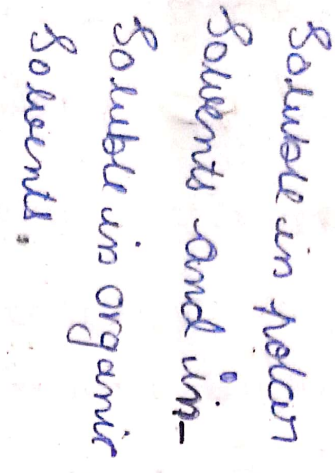 Soluble in polar
Solvents and in-
Soluble in organic
Solvents.